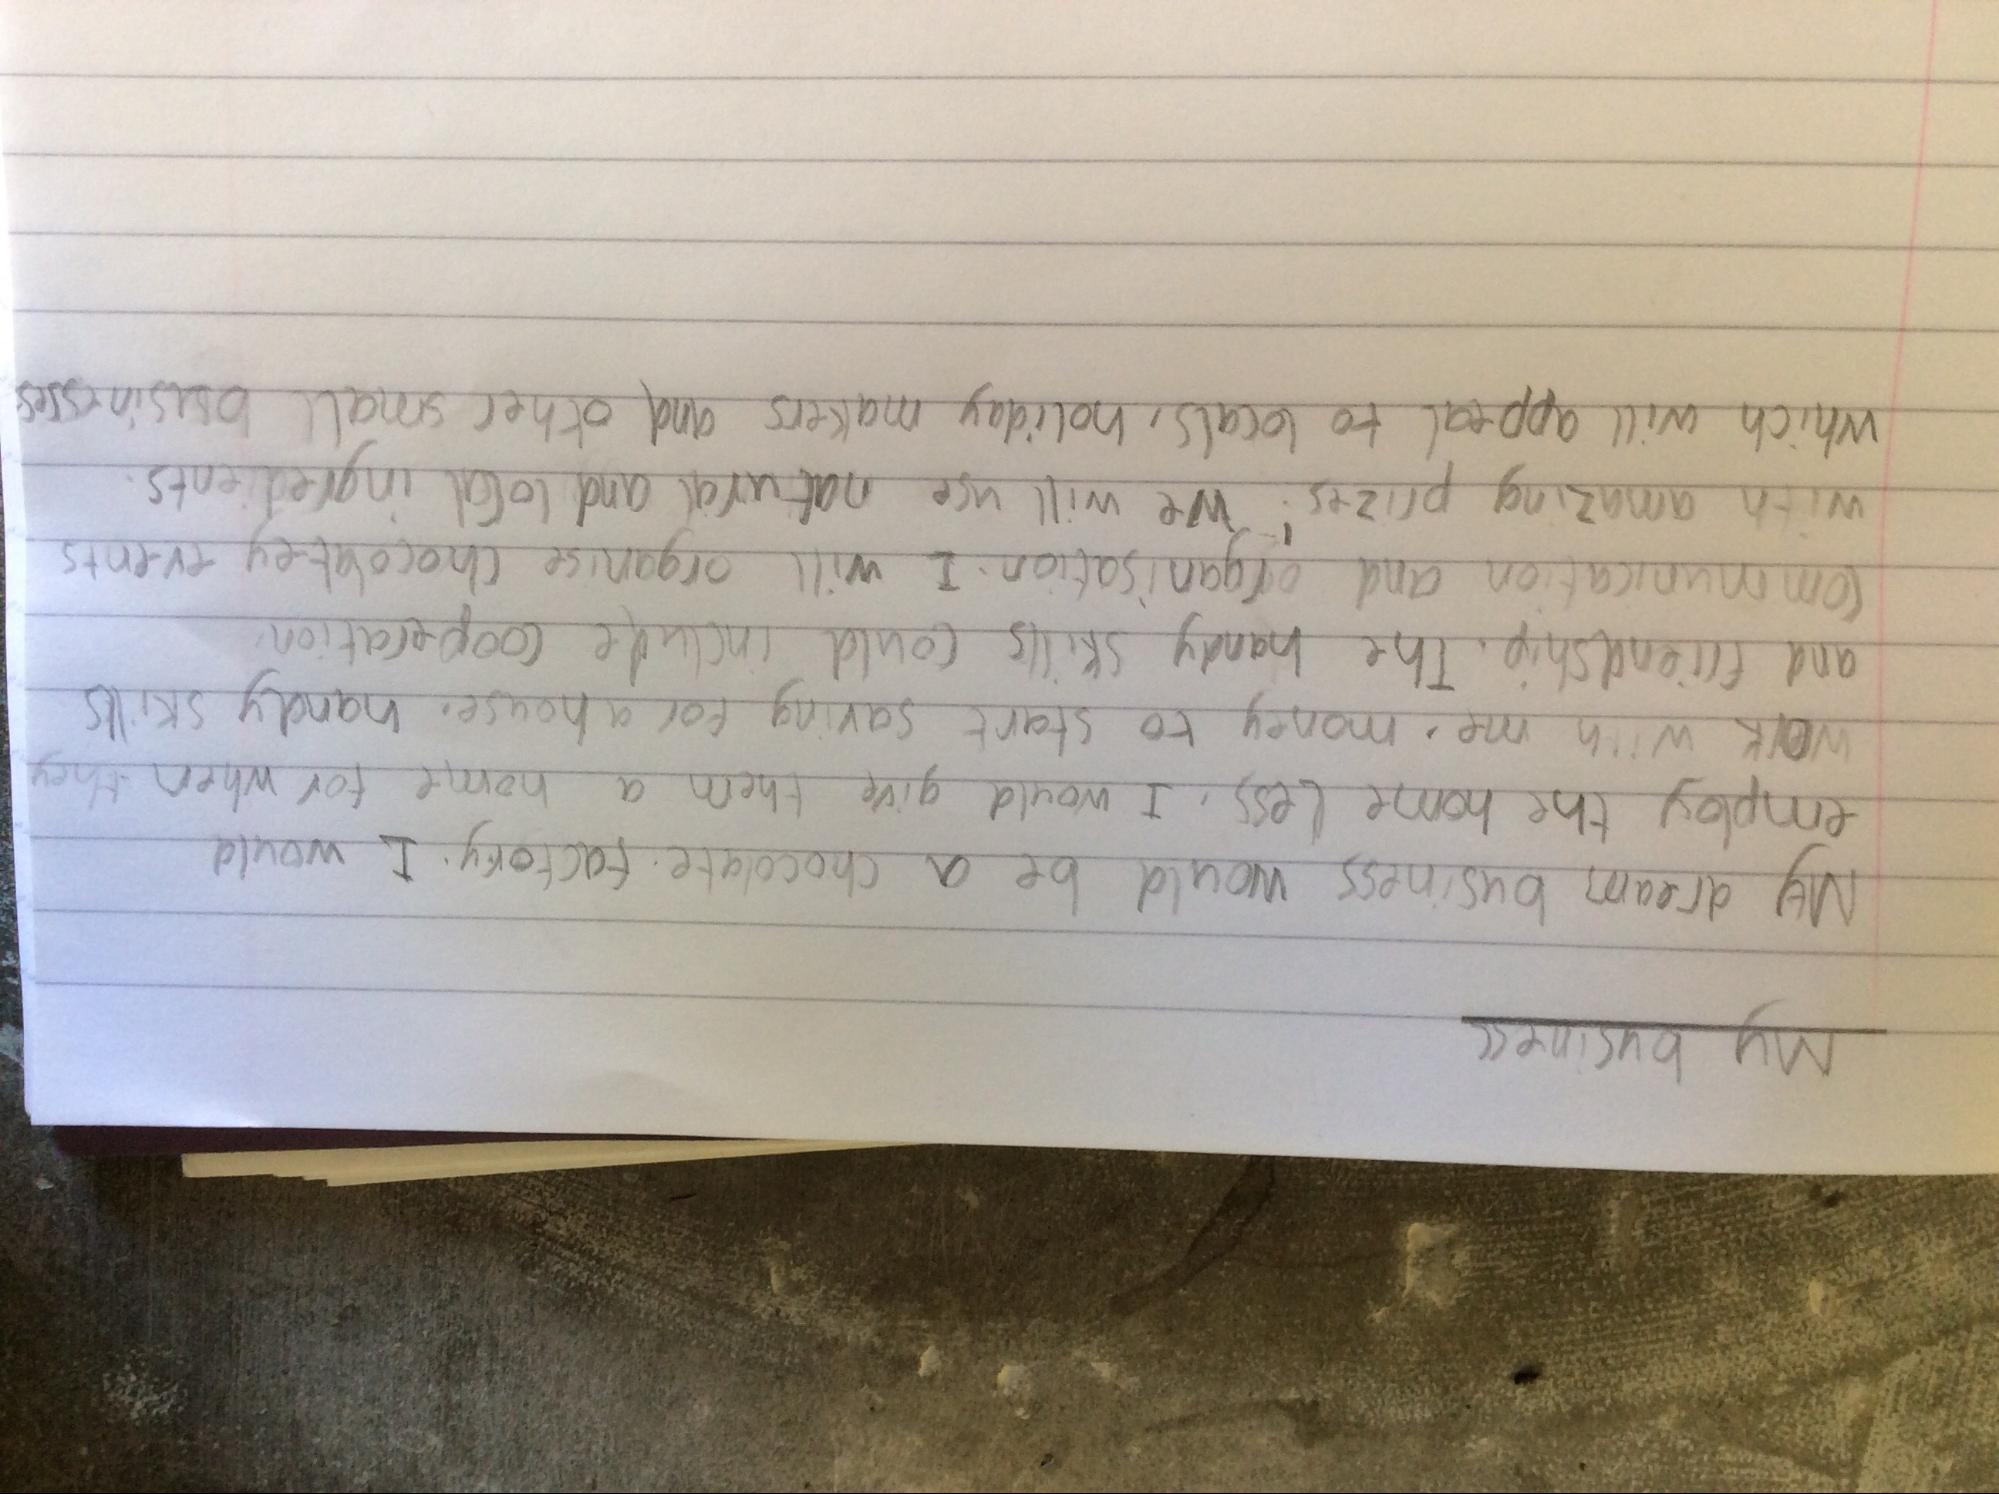 My business
My dream business would be a chocolate factory. I would
employ the home less. I would give them a home for when they
work with me. money to start saving for a house. handy skills
and friendship. The handy skills could include cooperation.
communication and organisation. I will organise chocolatey events
with amazing prizes. We will use natural and local ingredients.
which will appeal to locals, holiday makers and other small businesses